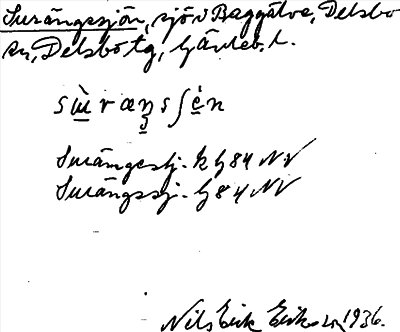 Surängssjön, sjö i Baggätve, Delsbo
sn, Delsbo tg, Gävleb. l.
sɯ̀ræŋsʃèn
Surängesj. k G84 NV
Surängssj. G84 NV
Nils Erik Eriksson 1936.